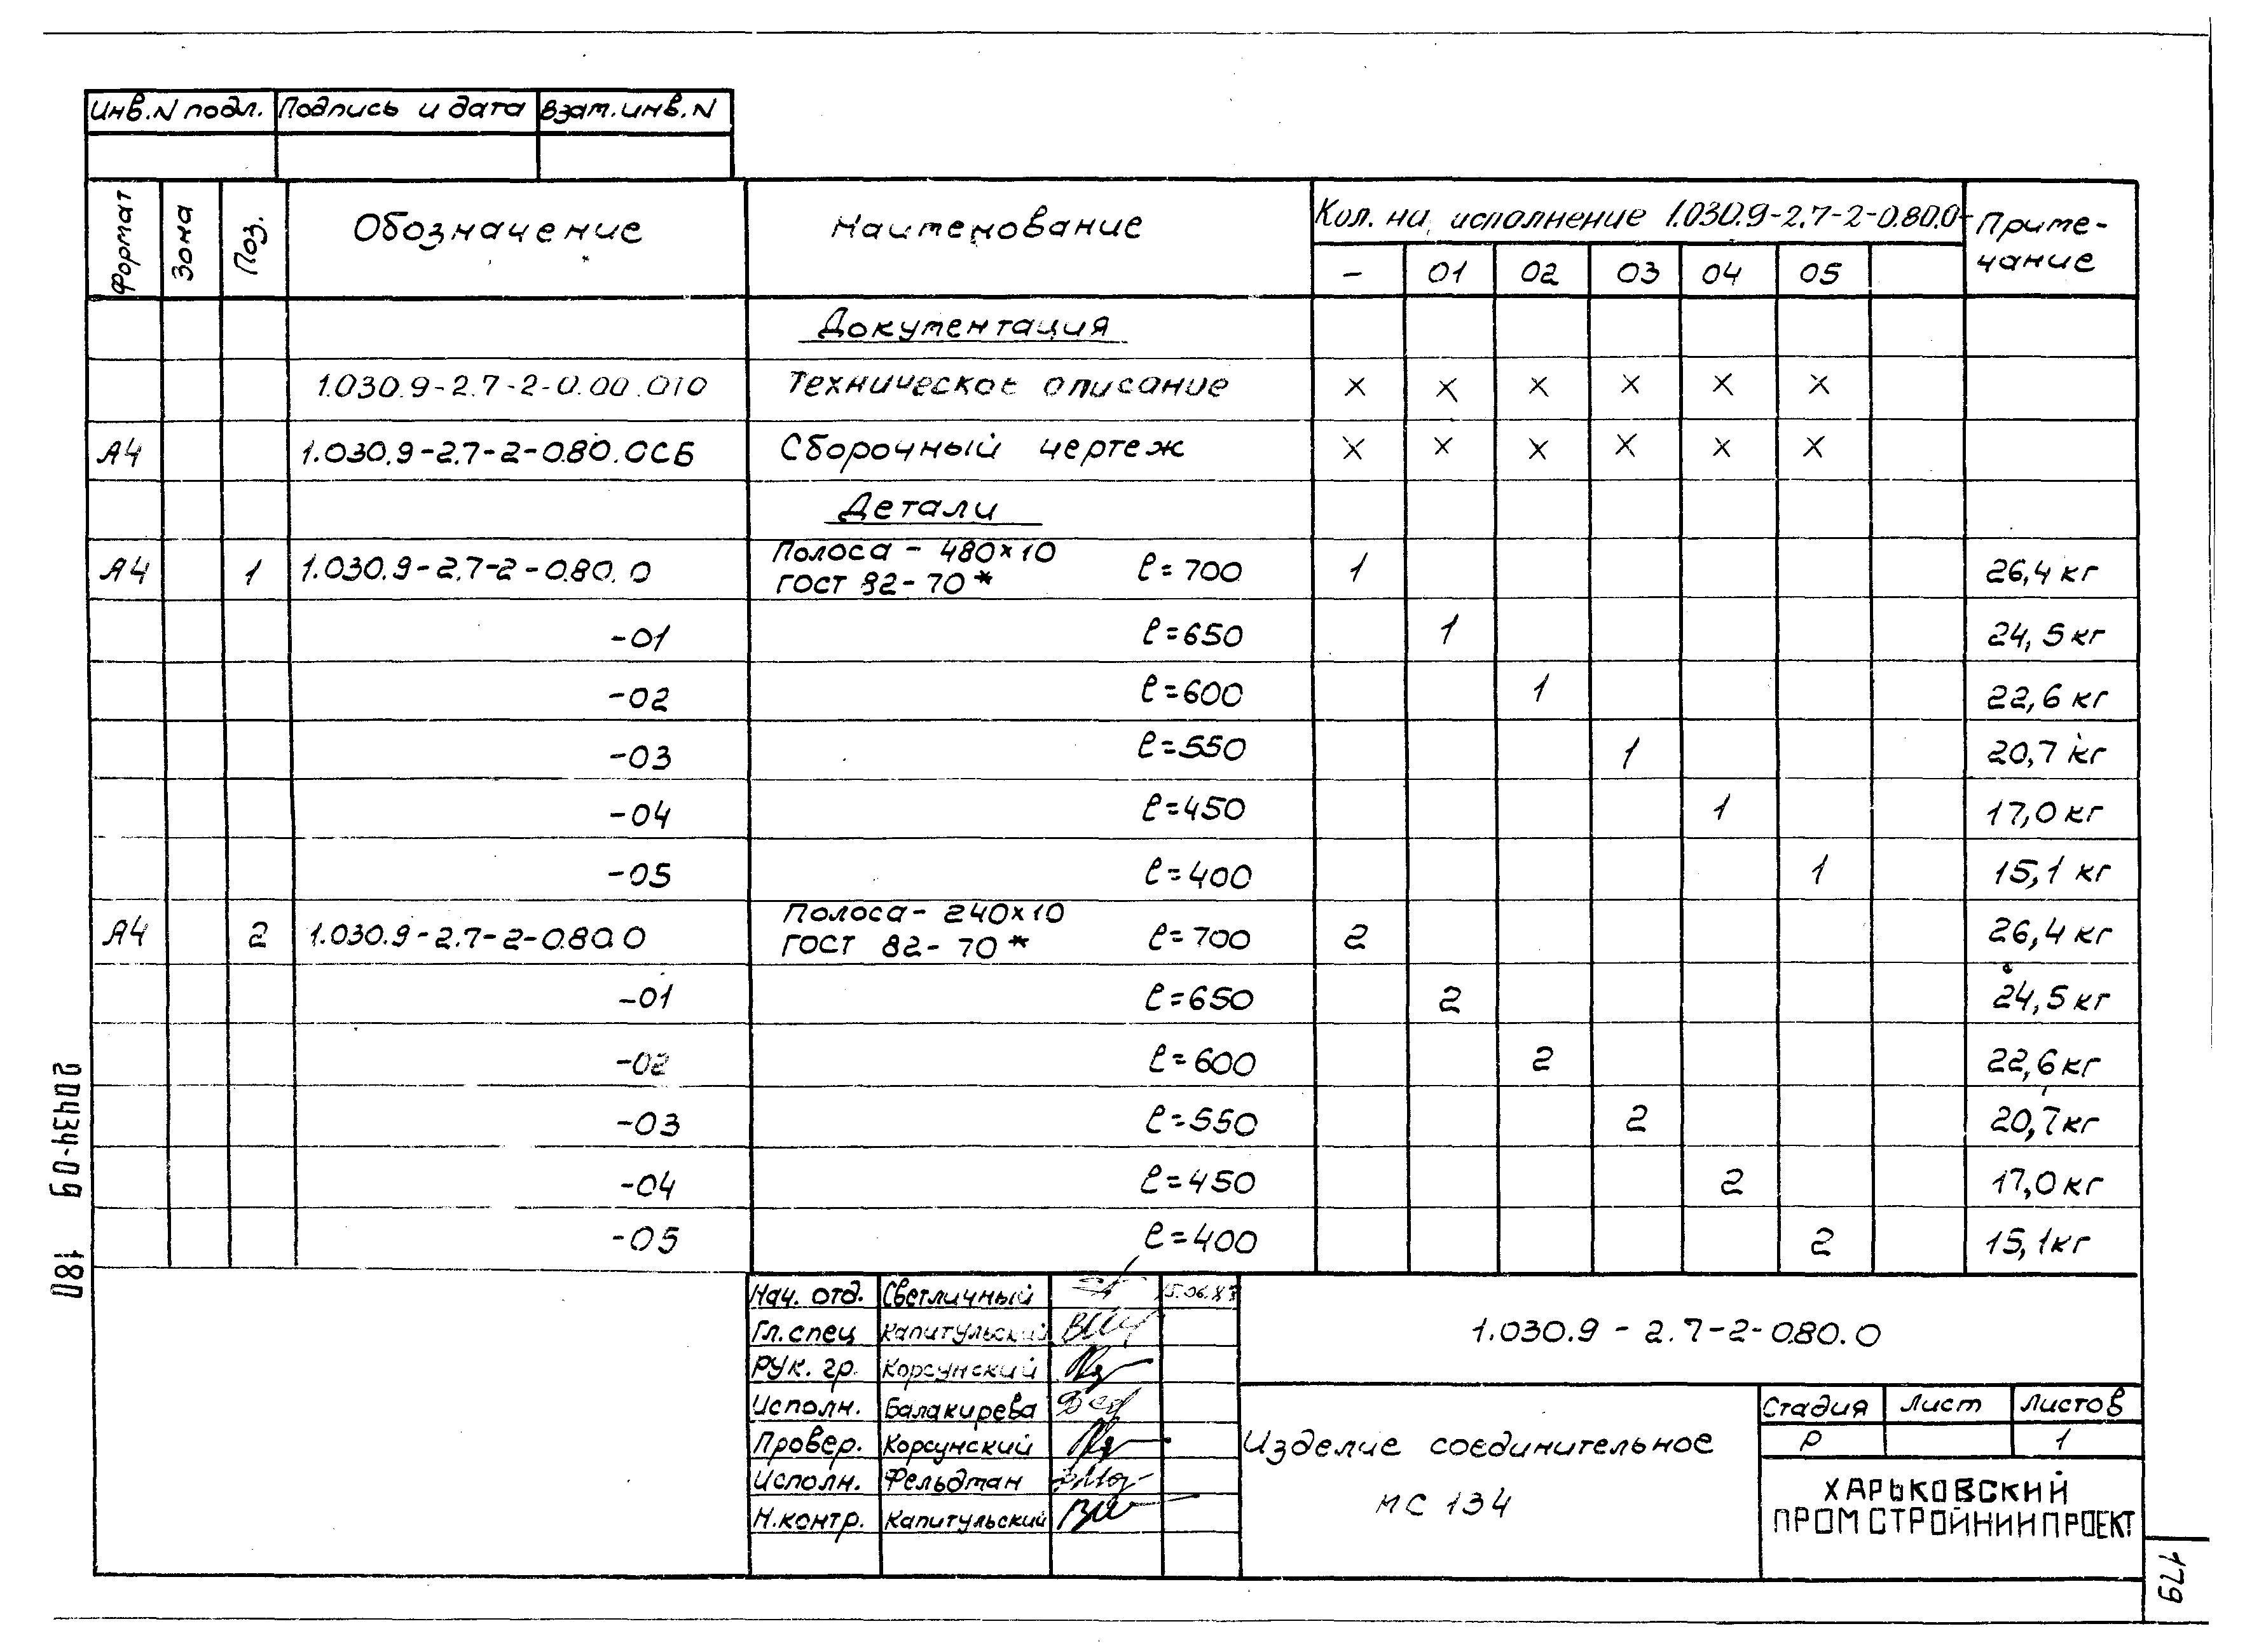 Инв.N подл. Подпись и дата Взам.инв.N
Формат Зона Поз. Обозначение Наименование Кол. на исполнение 1.030.9-2.7-2-0.80.0- Приме-
чание
- 01 02 03 04 05
Документация
1.030.9-2.7-2-0.00.0ТО Техническое описание × × × × × ×
А4 1.030.9-2.7-2-0.80.0СБ Сборочный чертеж × × × × × ×
Детали
А4 1 1.030.9-2.7-2-0.80.0 Полоса - 480×10
ГОСТ 82-70* ℓ=700 1 26,4 кг
-01 ℓ=650 1 24,5 кг
-02 ℓ=600 1 22,6 кг
-03 ℓ=550 1 20,7 кг
-04 ℓ=450 1 17,0 кг
-05 ℓ=400 1 15,1 кг
А4 2 1.030.9-2.7-2-0.80.0 Полоса - 240×10
ГОСТ 82-70* ℓ=700 2 26,4 кг
-01 ℓ=650 2 24,5 кг
-02 ℓ=600 2 22,6 кг
-03 ℓ=550 2 20,7 кг
-04 ℓ=450 2 17,0 кг
-05 ℓ=400 2 15,1 кг
Нач. отд. Светличный 15.06.87
Гл. спец Капитульский
Рук. гр. Корсунский
Исполн. Балакирева
Провер. Корсунский
Исполн. Фельдман
Н.контр. Капитульский
1.030.9 - 2.7-2-0.80.0
Изделие соединительное
МС 134
Стадия Лист Листов
Р 1
ХАРЬКОВСКИЙ
ПРОМСТРОЙНИИПРОЕКТ
20434-09 180
179